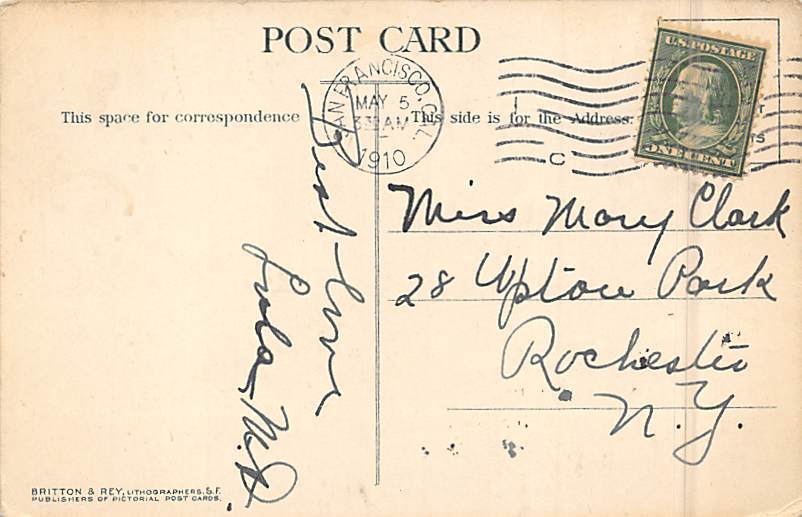 POST CARD
This space for correspondence
This side is for the Address.
SAN FRANCISCO, CAL.
MAY 5
330 AM
1910
C
U.S. POSTAGE
ONE CENT
Best Love
Lula M. D.
Miss Mary Clark
28 Upton Park
Rochester
N.Y.
BRITTON & REY, LITHOGRAPHERS, S.F.
PUBLISHERS OF PICTORIAL POST CARDS.